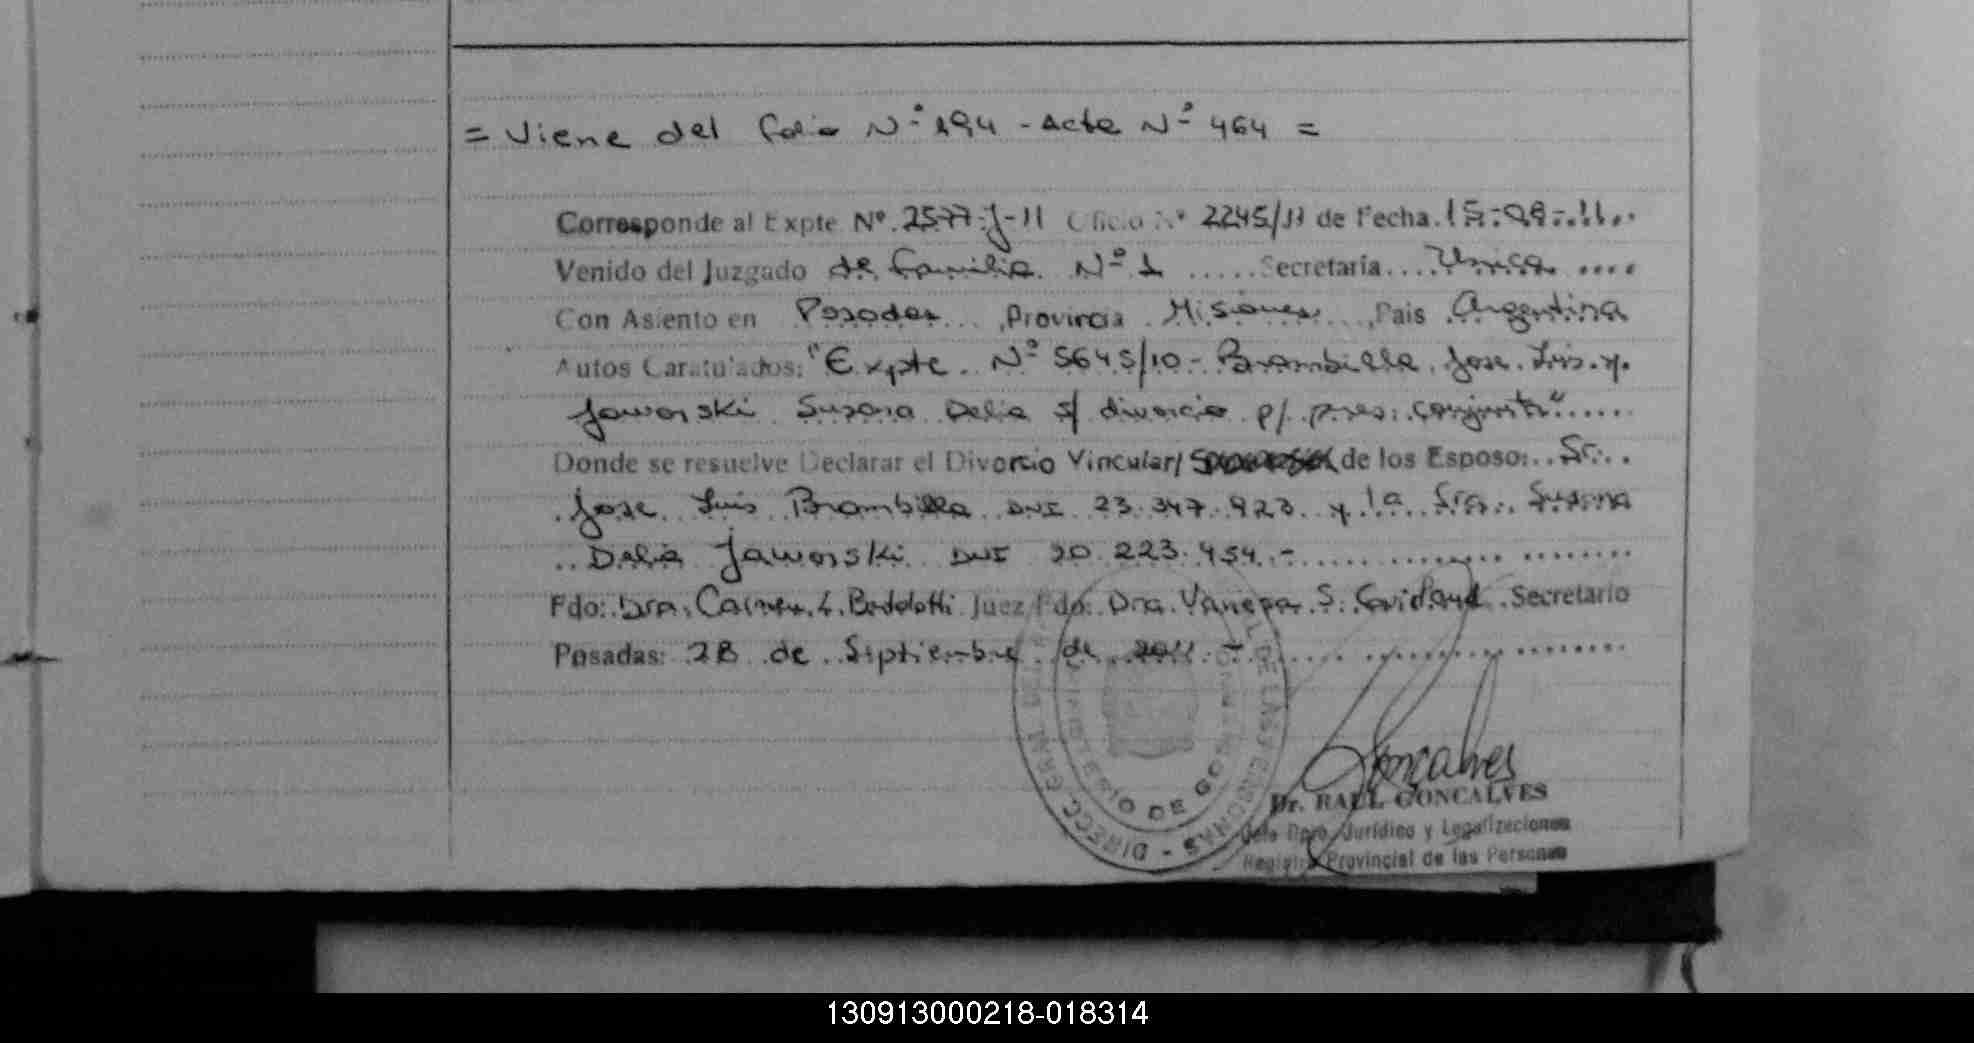 = Viene del folio Nº 194 - Acta Nº 464 =
Corresponde al Expte Nº. 2577-J-11 Oficio Nº 2245/11 de Fecha. 15-09-11..
Venido del Juzgado de Familia Nº 1 ..... Secretaría.... Unica ....
Con Asiento en Posadas ..., Provincia . Misiones ..., Pais . Argentina
Autos Caratulados: "Expte. Nº 5645/10 - Brambilla Jose Luis y
Jaworski Susana Delia s/ divorcio p/ pres. conjunta".....
Donde se resuelve Declarar el Divorcio Vincular/ de los Esposo:.. Sr...
Jose Luis Brambilla DNI 23.347.923 y la Sra. Susana
.. Delia Jaworski DNI 20.223.454.- ............
Fdo: Dra. L. Bordolotti Juez Fdo: Dra. S. Secretario
Posadas: 28 de Septiembre de 2011 -
DIRECC. GRAL. DE LAS PERSONAS
Goncalves
Dr. RAUL GONCALVES
Jefe Dpto. Jurídico y Legalizaciones
Registro Provincial de las Personas
130913000218-018314